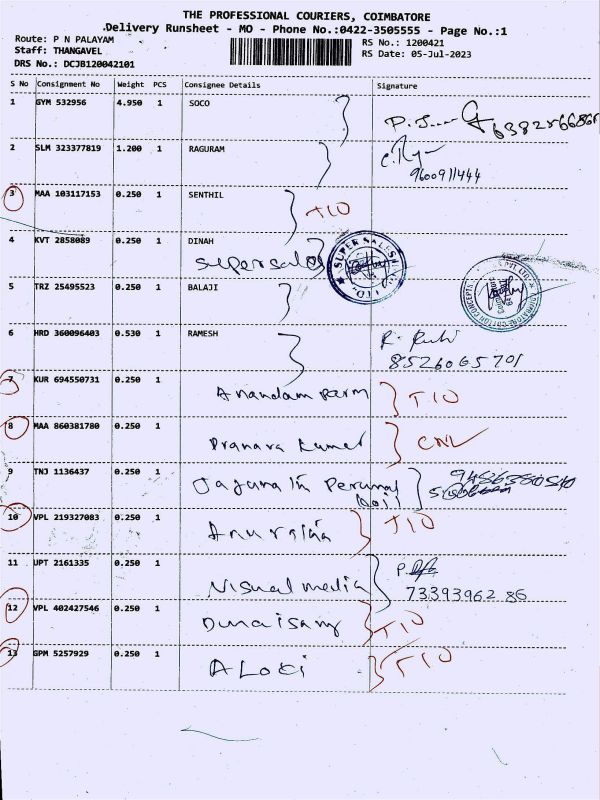 THE PROFESSIONAL COURIERS, COIMBATORE
Delivery Runsheet - MO - Phone No.:0422-3505555 - Page No.:1
Route: P N PALAYAM
RS No.: 1200421
Staff: THANGAVEL
RS Date: 05-Jul-2023
DRS No.: DCJB120042101
S No Consignment No Weight PCS Consignee Details Signature
1 GYM 532956 4.950 1 SOCO
2 SLM 323377819 1.200 1 RAGURAM
9600911444
3 MAA 103117153 0.250 1 SENTHIL TIO
4 KVT 2858089 0.250 1 DINAH
Supersales
SUPER SALES
5 TRZ 25495523 0.250 1 BALAJI
6 HRD 360096403 0.530 1 RAMESH
8526065701
7 KUR 694550731 0.250 1
Anandam parm TIO
8 MAA 860381780 0.250 1
Pranava Kumer CNL
9 TNJ 1136437 0.250 1
Perumal
10 VPL 219327083 0.250 1 TIO
11 UPT 2161335 0.250 1
Visual media 7339396286
12 VPL 402427546 0.250 1
TIO
13 GPM 5257929 0.250 1 TIO